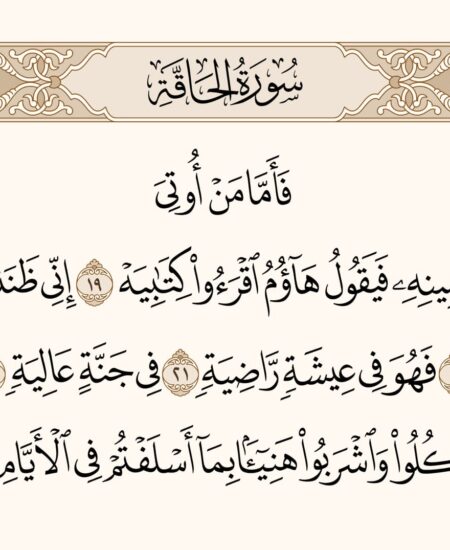 سُورَةُ الحَاقَّةِ
فَأَمَّا مَنْ أُوتِىَ
فَيَقُولُ هَآؤُمُ ٱقْرَءُوا۟ كِتَٰبِيَهْ ١٩ إِنِّى
فَهُوَ فِى عِيشَةٍ رَّاضِيَةٍ ٢١ فِى جَنَّةٍ عَالِيَةٍ
كُلُوا۟ وَٱشْرَبُوا۟ هَنِيٓـًٔۢا بِمَآ أَسْلَفْتُمْ فِى ٱلْأَيَّامِ